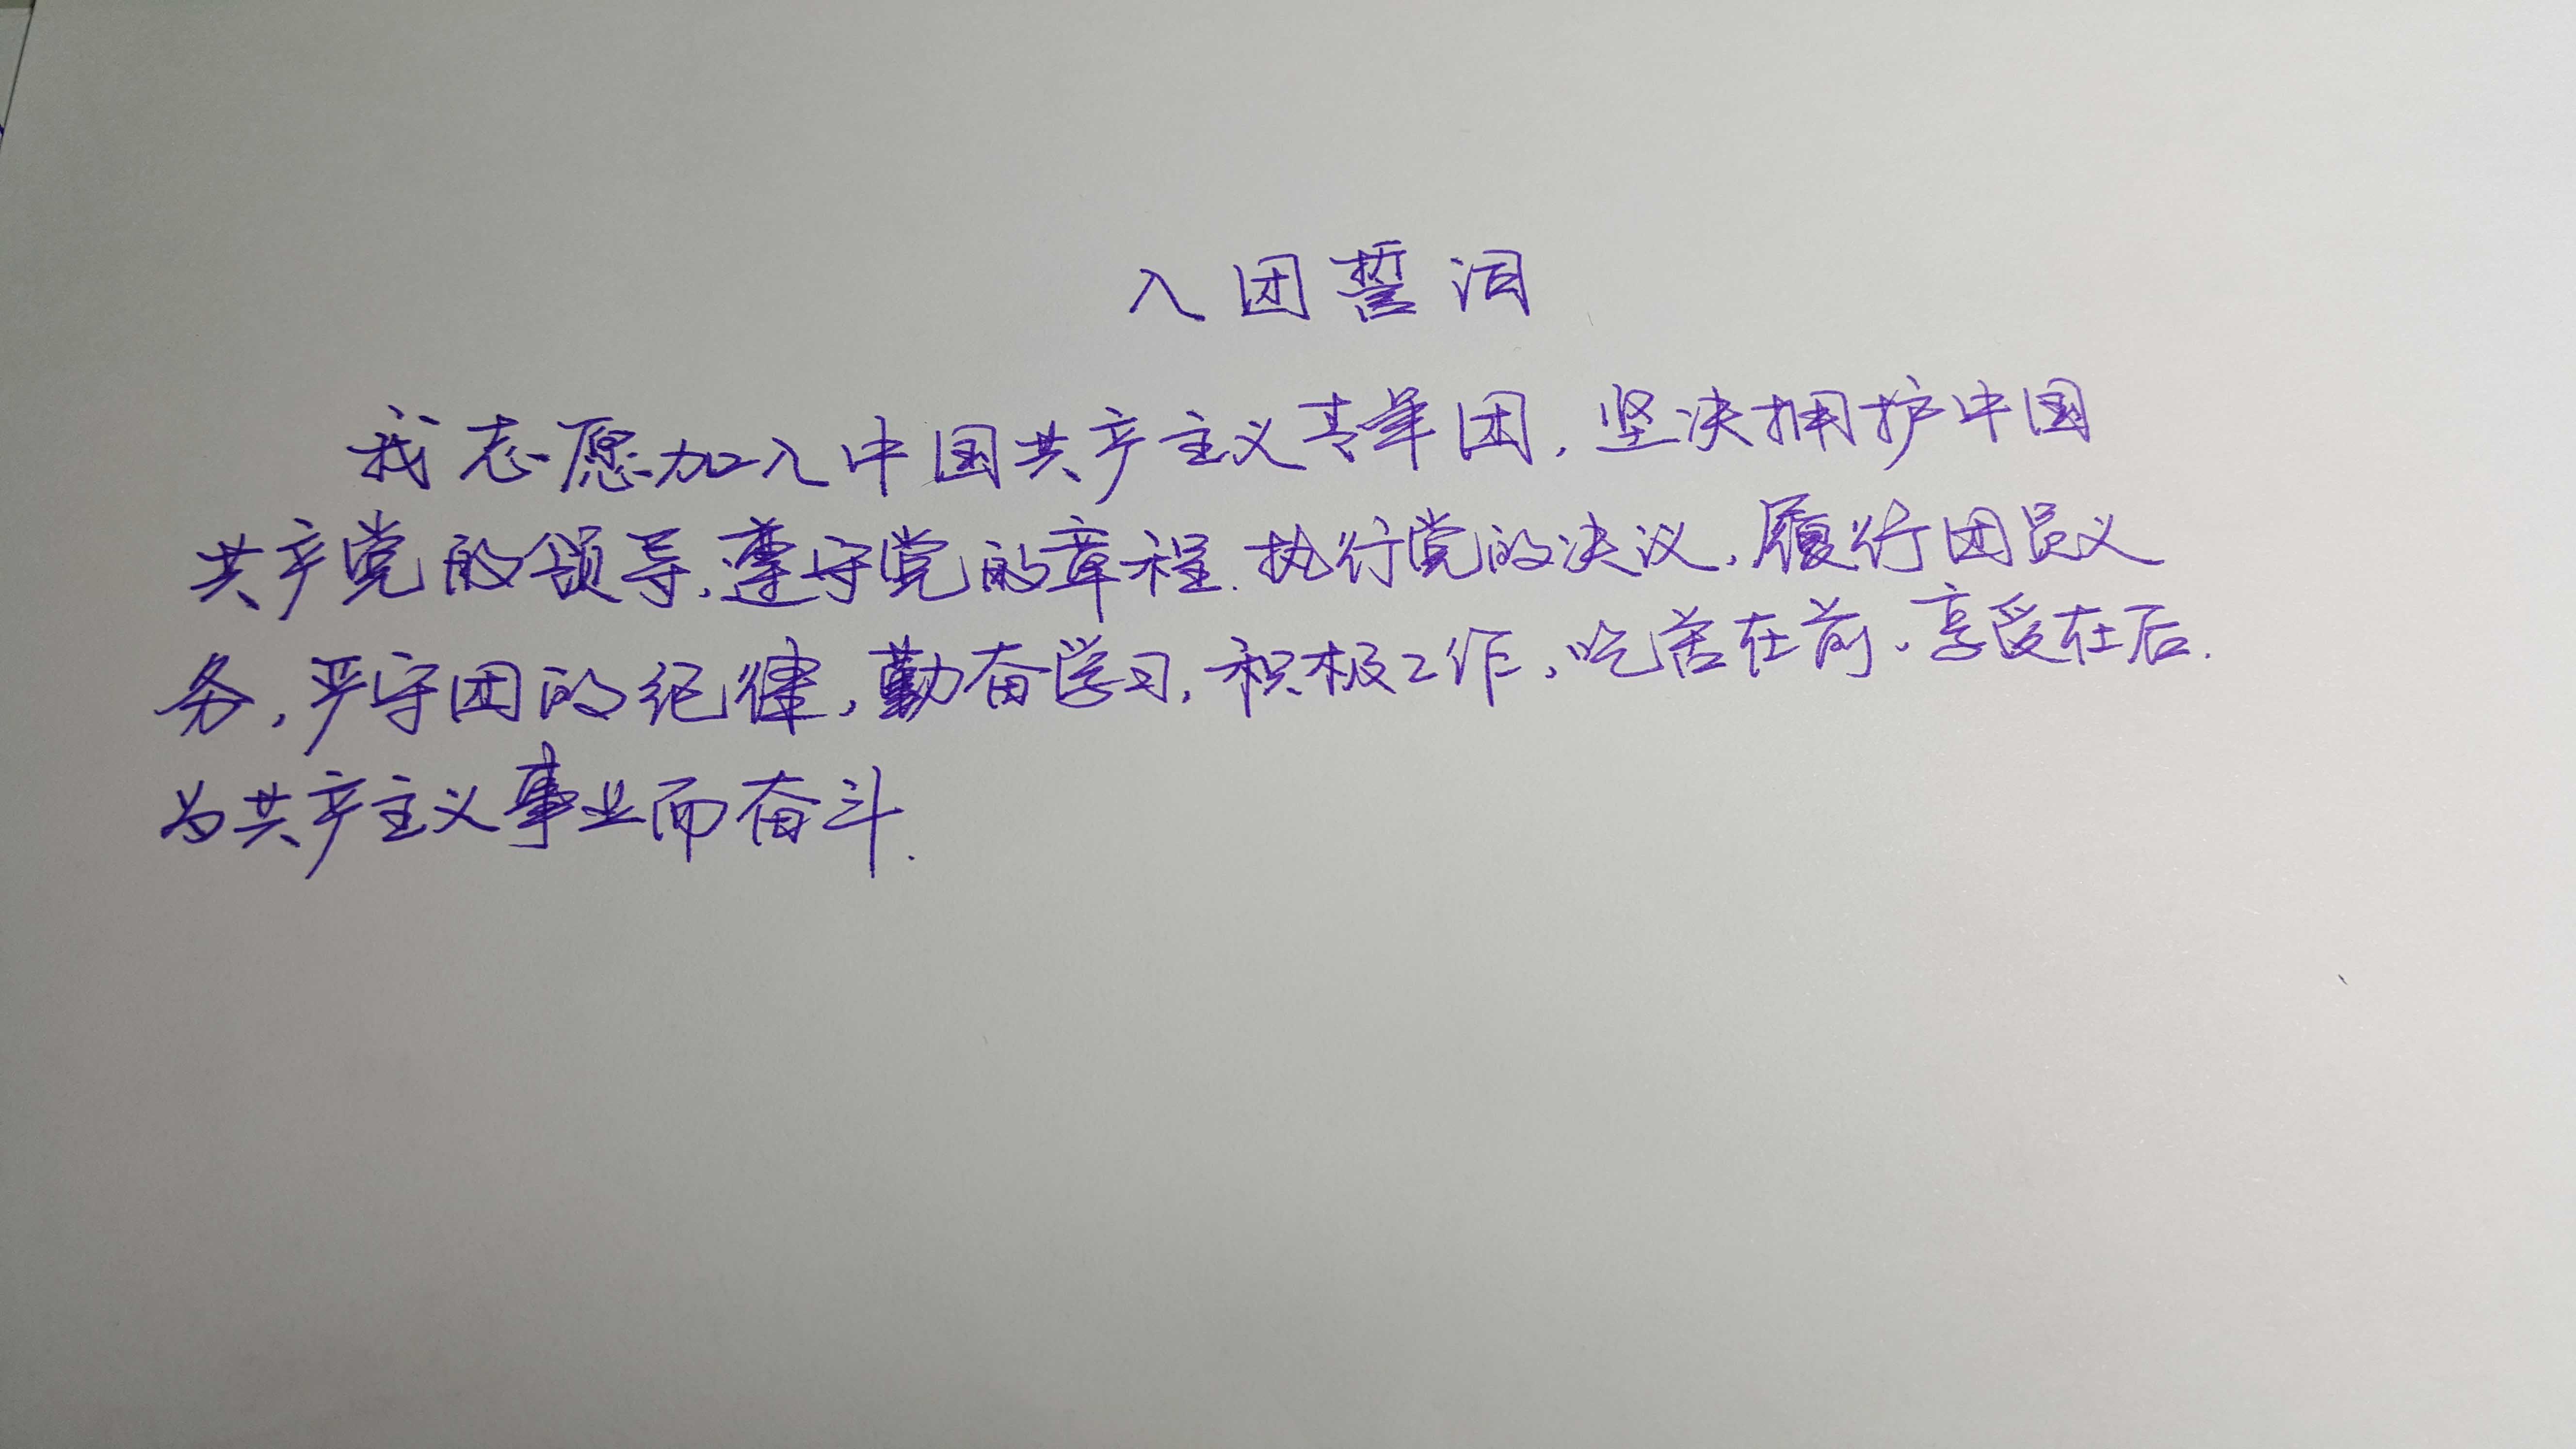 入团誓词
我志愿加入中国共产主义青年团,坚决拥护中国
共产党的领导,遵守党的章程.执行党的决议,履行团员义
务,严守团的纪律,勤奋学习,积极工作,吃苦在前,享受在后.
为共产主义事业而奋斗.